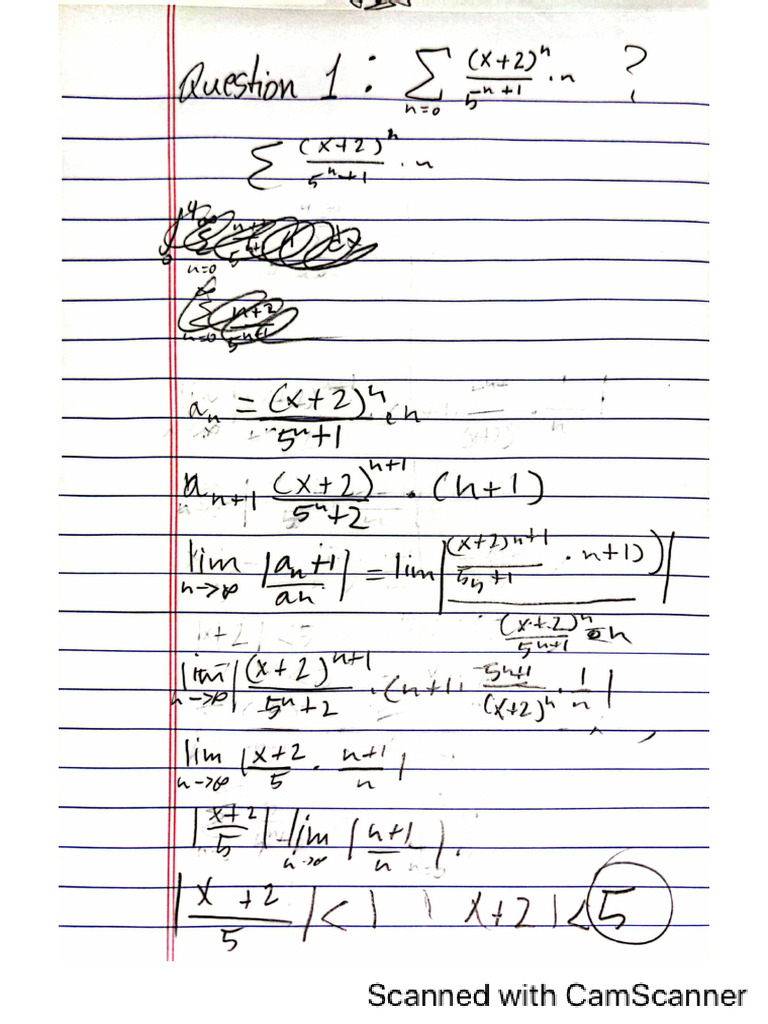 Question 1 : ∑ n=0 (x+2)^n / 5^(n+1) · n ?
∑ (x+2)^n / 5^n+1 · n
a_n = (x+2)^n / 5^n+1 · n
a_n+1 (x+2)^(n+1) / 5^n+2 · (n+1)
lim n→∞ |a_n+1 / an| = lim | (x+2)^n+1 / 5n+1 · n+1) / (x+2)^n / 5^n+1 · n |
lim n→∞ | (x+2)^(n+1) / 5^n+2 · (n+1 · 5^n+1 / (x+2)^n · 1/n |
lim n→∞ | x+2 / 5 · n+1 / n |
| x+2 / 5 | lim n→∞ | n+1 / n | .
| x +2 / 5 | < 1 | x+2 | < 5
Scanned with CamScanner